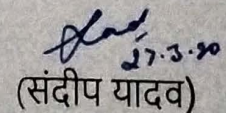 27.3.20
(संदीप यादव)